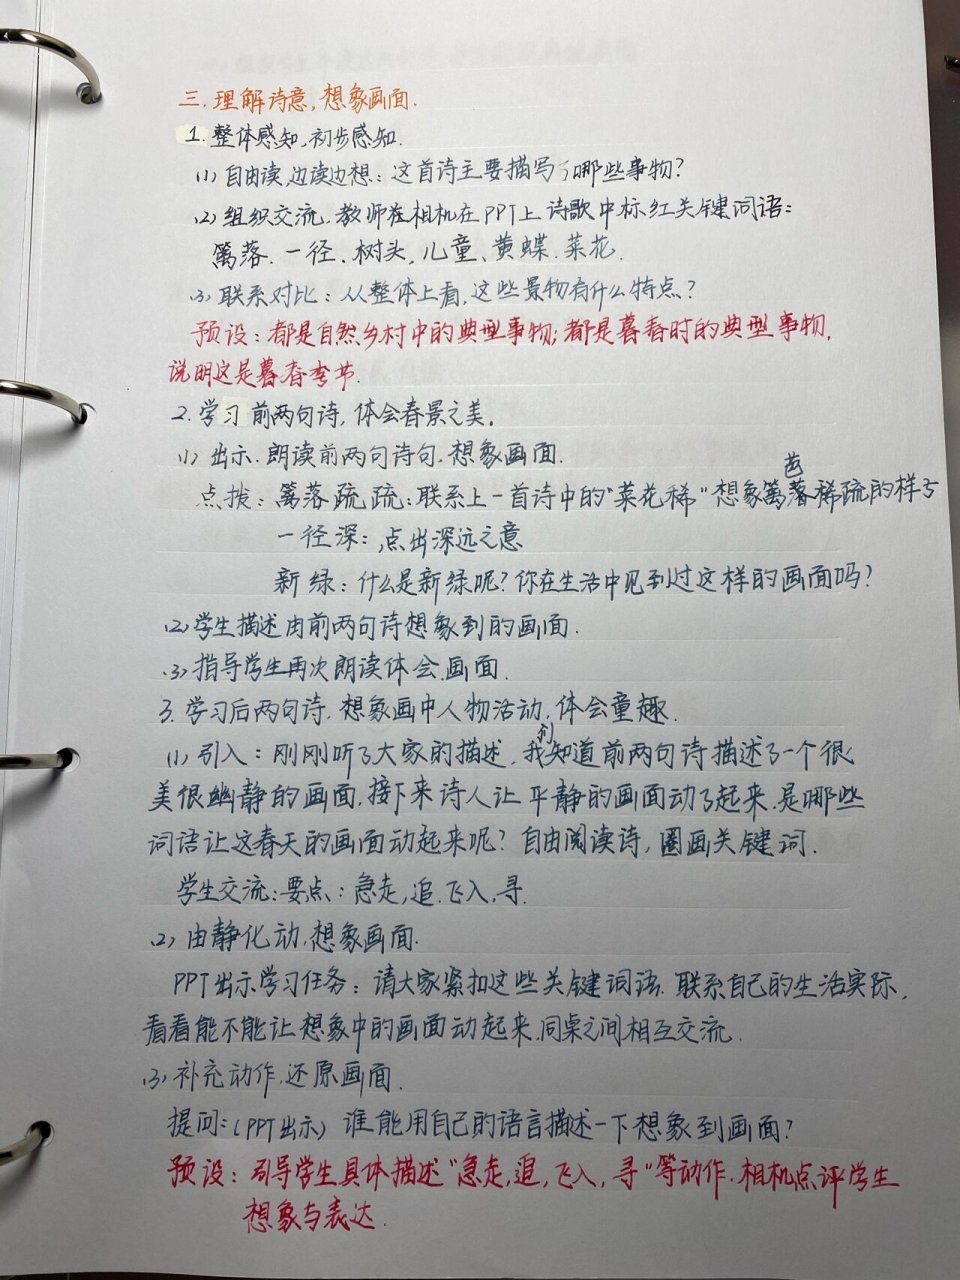 三.理解诗意,想象画面.
1.整体感知,初步感知.
(1)自由读,边读边想:这首诗主要描写了哪些事物?
(2)组织交流.教师在相机在PPT上诗歌中标红关键词语:
篱落.一径、树头,儿童、黄蝶.菜花.
(3)联系对比:从整体上看,这些景物有什么特点?
预设:都是自然乡村中的典型事物;都是暮春时的典型事物,
说明这是暮春季节.
2.学习前两句诗,体会春景之美.
(1)出示.朗读前两句诗句.想象画面.
点拨:篱落疏疏:联系上一首诗中的"菜花稀"想象篱落稀疏的样子
一径深:点出深远之意
新绿:什么是新绿呢?你在生活中见到过这样的画面吗?
(2)学生描述由前两句诗想象到的画面.
(3)指导学生再次朗读体会画面.
3.学习后两句诗.想象画中人物活动,体会童趣.
(1)引入:刚刚听了大家的描述,我知道前两句诗描述了一个很
美很幽静的画面,接下来诗人让平静的画面动了起来.是哪些
词语让这春天的画面动起来呢?自由阅读诗,圈画关键词.
学生交流:要点:急走,追.飞入,寻.
(2)由静化动,想象画面.
PPT出示学习任务:请大家紧扣这些关键词语.联系自己的生活实际,
看看能不能让想象中的画面动起来.同桌之间相互交流.
(3)补充动作,还原画面.
提问:(PPT出示)谁能用自己的语言描述一下想象到画面?
预设:引导学生具体描述"急走,追,飞入,寻"等动作.相机点评学生
想象与表达.